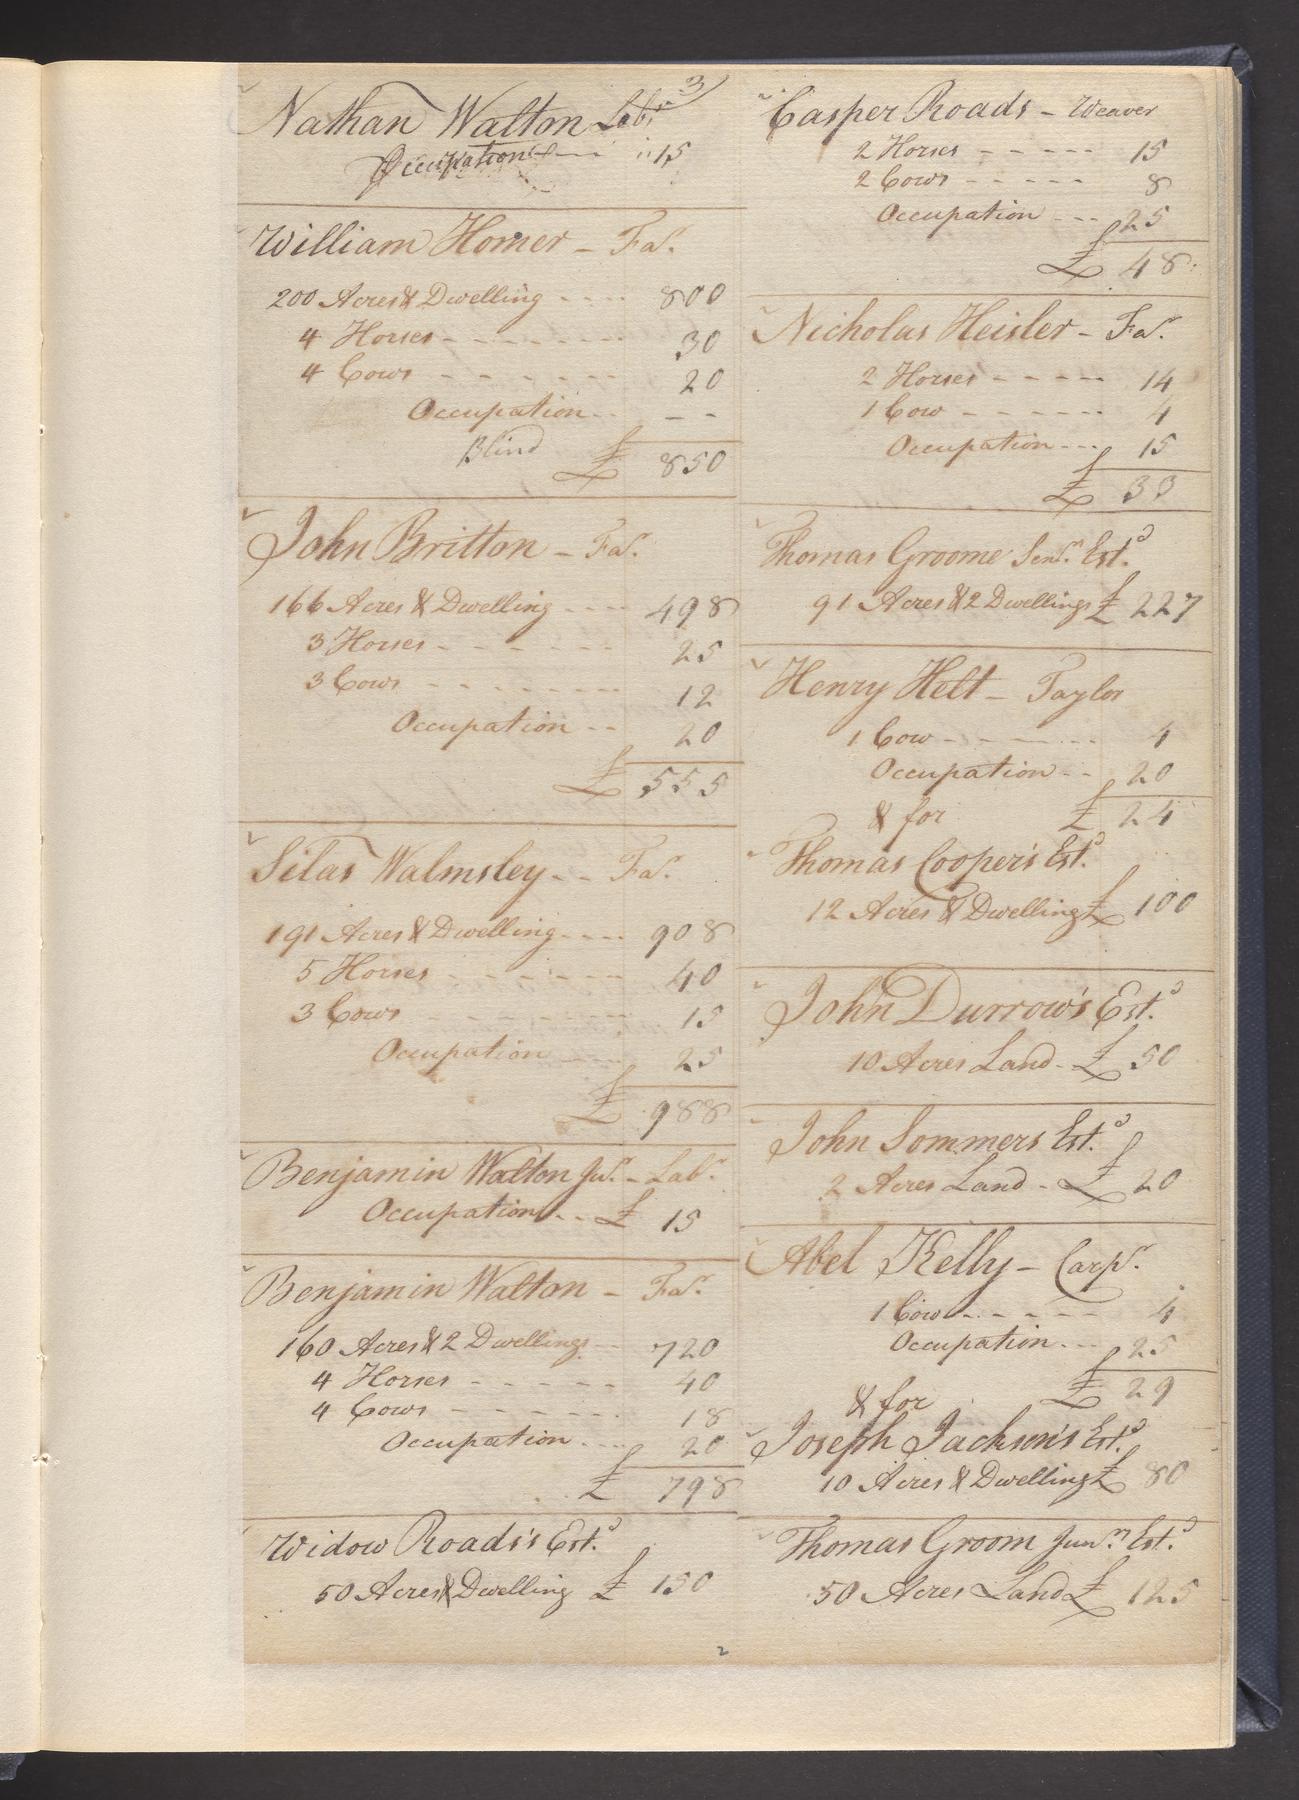 3
Nathan Walton Labr
Occupation - - - 15
William Homer - Far.
200 Acres & Dwelling - - - - 800
4 Horses - - - - - - - - 30
4 Cows - - - - - - 20
Occupation - - - -
Blind £ 850
John Britton - Far.
166 Acres & Dwelling - - - - 498
3 Horses - - - - - - 25
3 Cows - - - - - - - - 12
Occupation - - 20
£ 555
Silas Walmsley - - Far.
191 Acres & Dwelling - - - - 908
5 Horses - - - - - - 40
3 Cows - - - - - - - - 15
Occupation - - - - 25
£ 988
Benjamin Walton Jur. - Labr.
Occupation - - £ 15
Benjamin Walton - Far.
160 Acres & 2 Dwellings - - 720
4 Horses - - - - - - 40
4 Cows - - - - - - - 18
Occupation - - - - 20
£ 798
Widow Roads's Estd.
50 Acres & Dwelling £ 150
Casper Roads - Weaver
2 Horses - - - - - 15
2 Cows - - - - - 8
Occupation - - - 25
£ 48
Nicholas Heisler - Far.
2 Horses - - - - - 14
1 Cow - - - - - - 4
Occupation - - - 15
£ 33
Thomas Groome Senr. Estd.
91 Acres & 2 Dwellings £ 227
Henry Helt - Taylor
1 Cow - - - - - - - 4
Occupation - - 20
& for £ 24
Thomas Cooper's Estd.
12 Acres & Dwelling £ 100
John Durrow's Estd.
10 Acres Land - £ 50
John Sommers Estd.
2 Acres Land - £ 20
Abel Kelly - Carpr.
1 Cow - - - - - - 4
Occupation - - - 25
& for £ 29
Joseph Jackson's Estd.
10 Acres & Dwelling £ 80
Thomas Groom Junr. Estd.
50 Acres Land £ 125
2